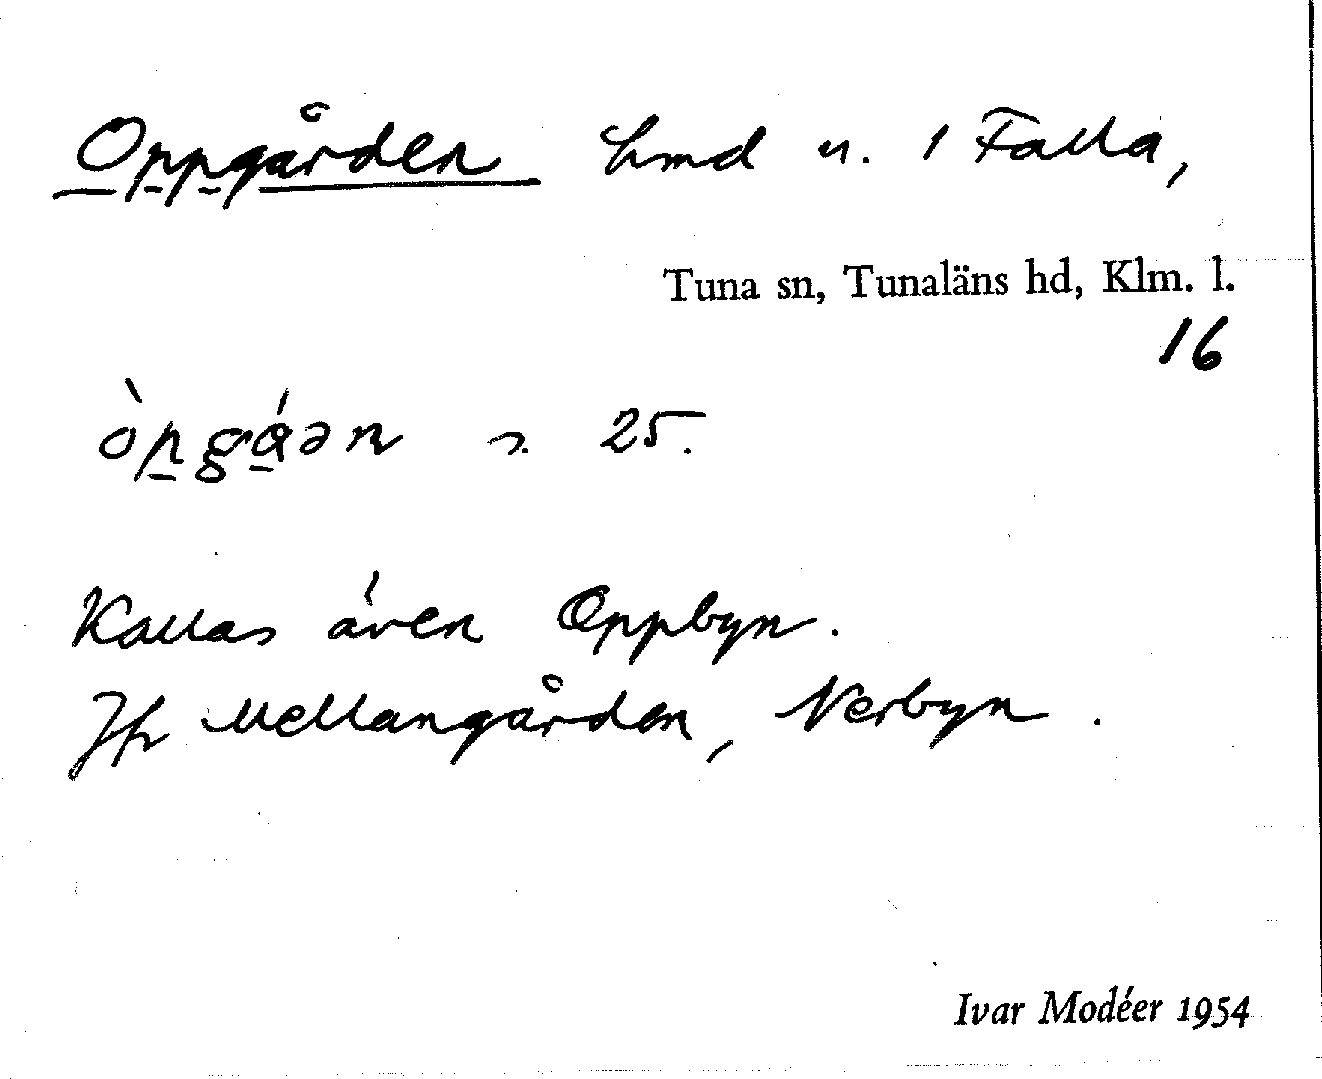 Oppgården hmd u. 1 Falla,
Tuna sn, Tunaläns hd, Klm. l.
16
25.
Kallas även Oppbyn.
Jfr Mellangården, Nerbyn.
Ivar Modéer 1954